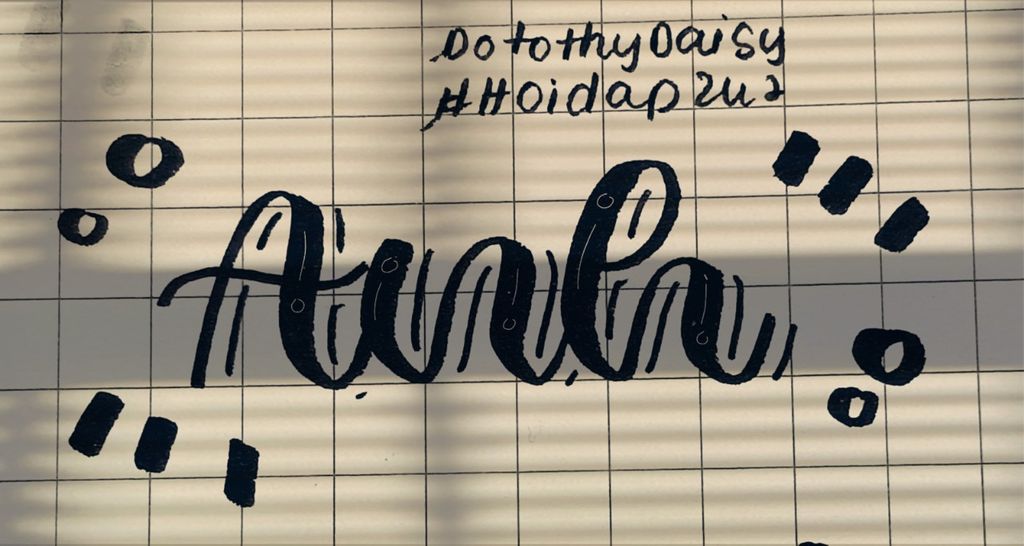 DotothyDaisy
#Hoidap247
Anh